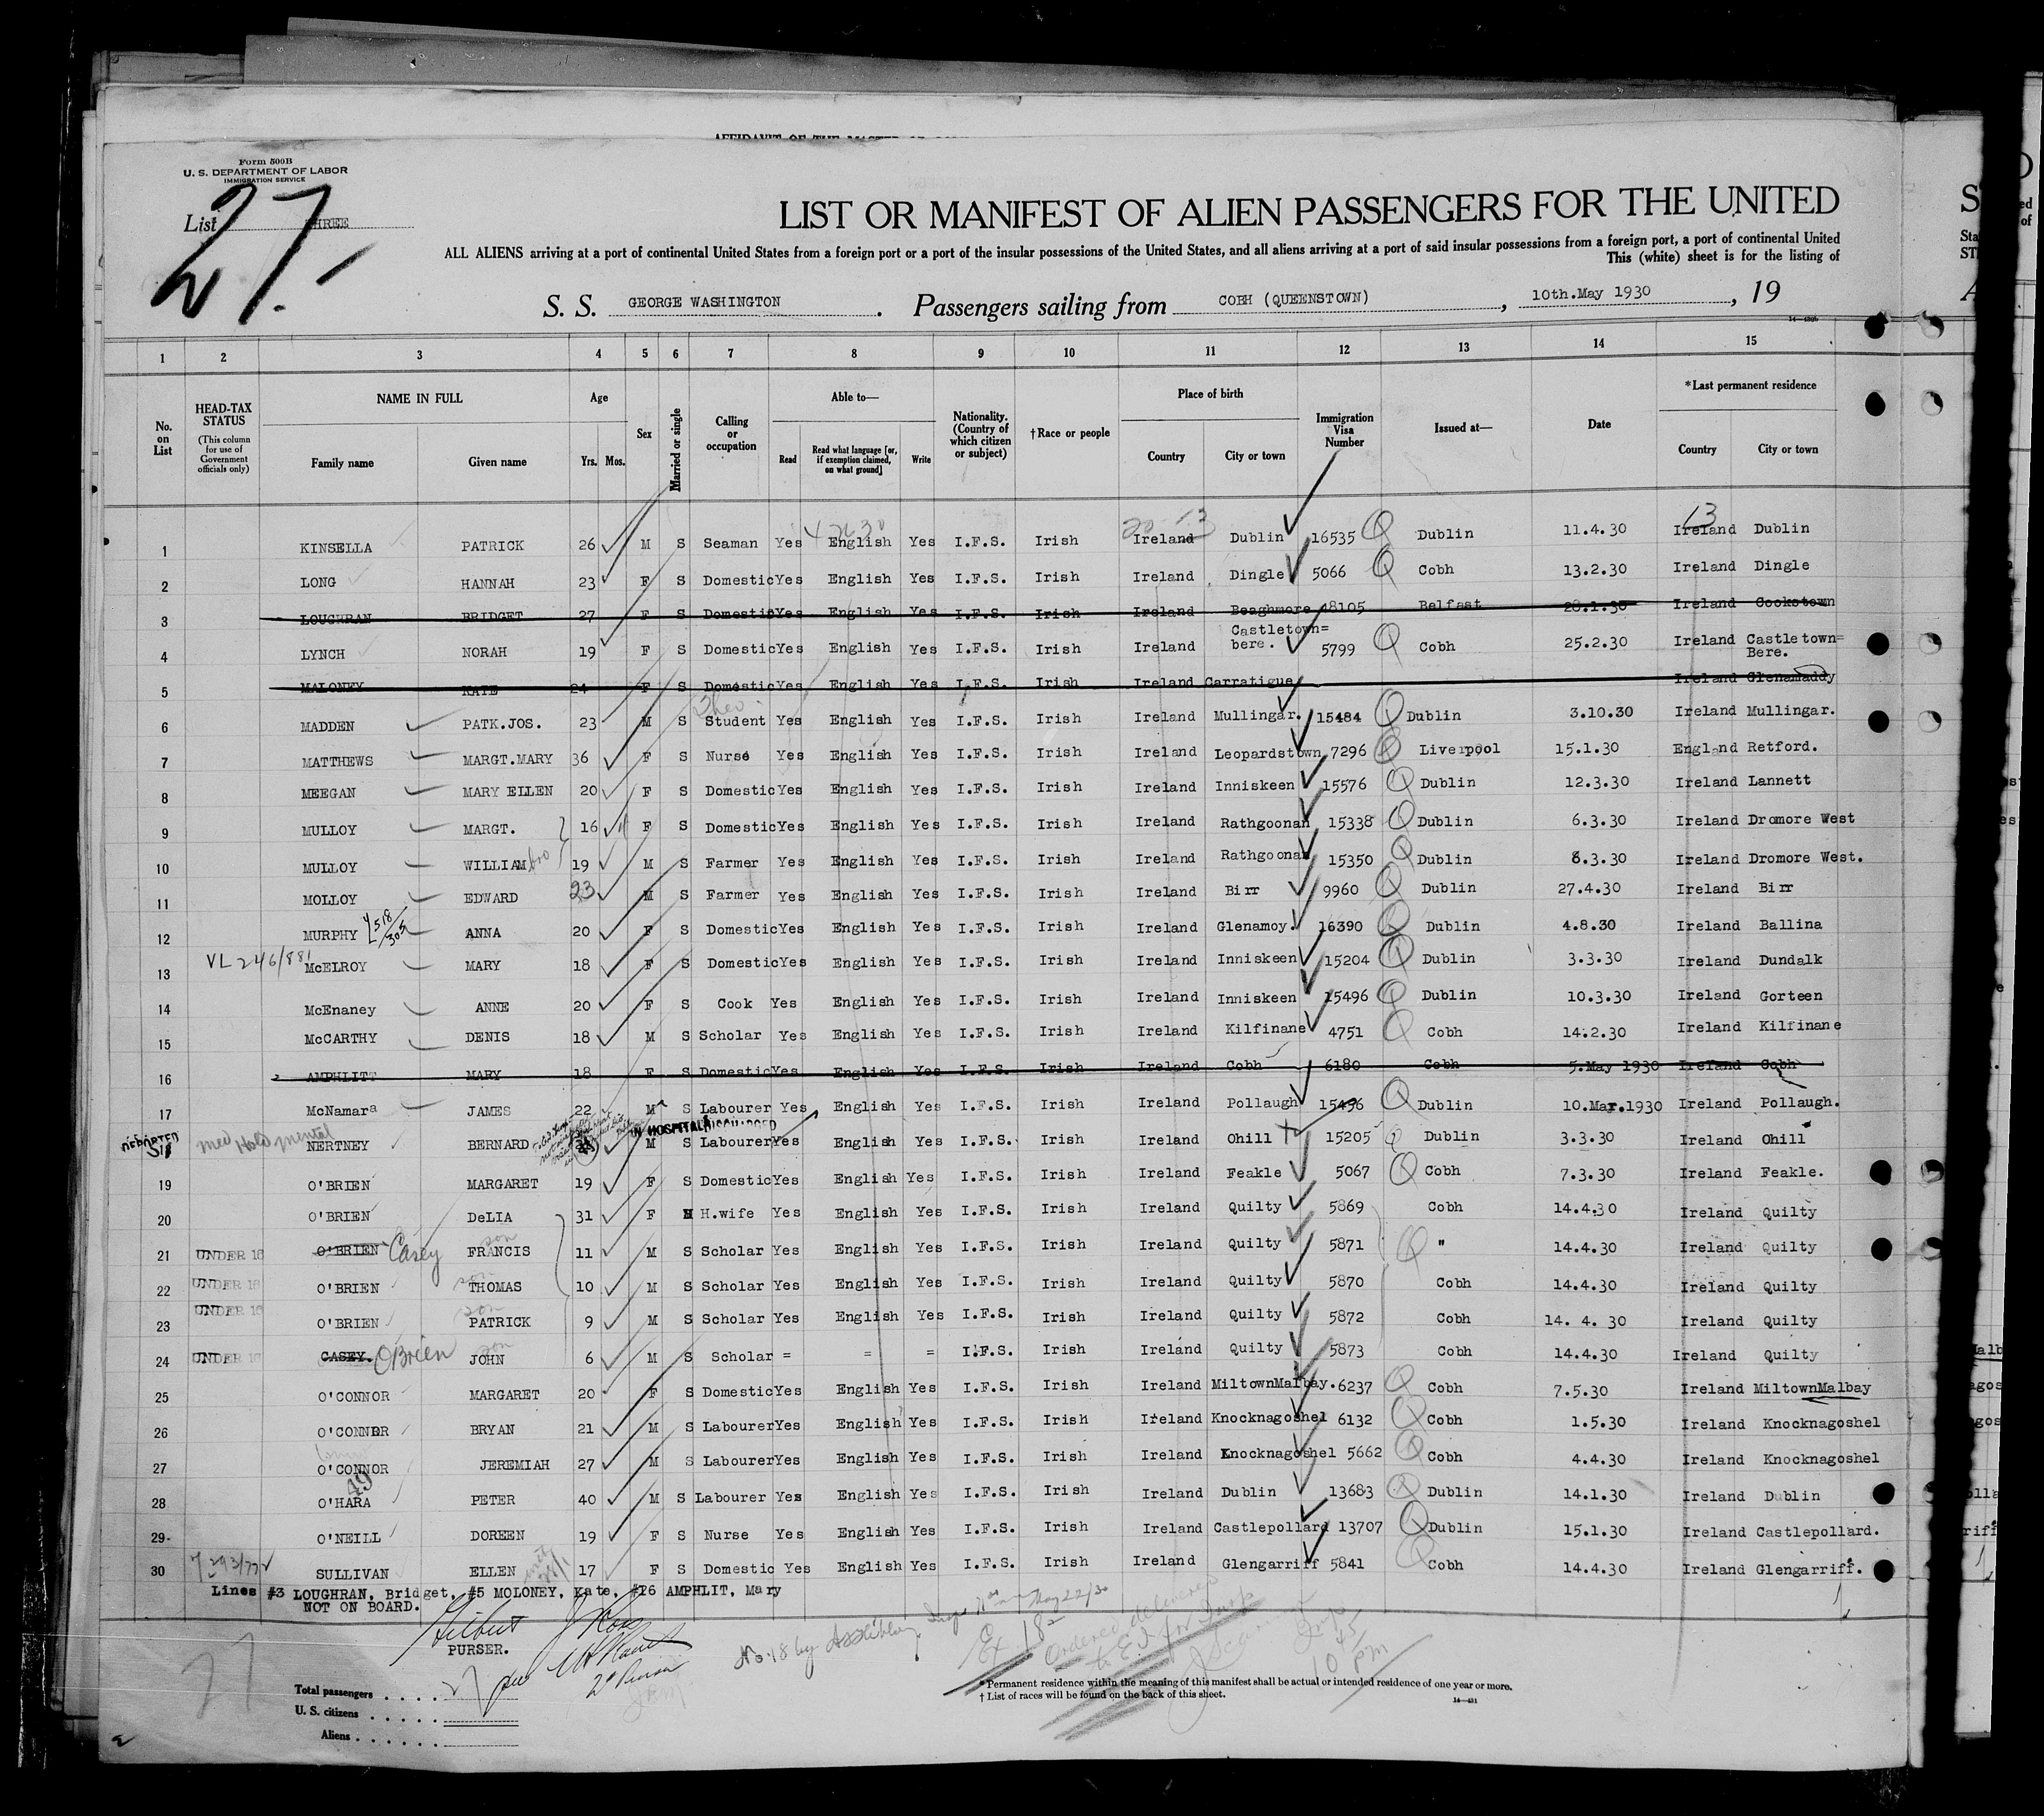 AFFIDAVIT OF THE MASTER
Form 500B
U. S. DEPARTMENT OF LABOR
IMMIGRATION SERVICE
List THREE
27.
LIST OR MANIFEST OF ALIEN PASSENGERS FOR THE UNITED
ALL ALIENS arriving at a port of continental United States from a foreign port or a port of the insular possessions of the United States, and all aliens arriving at a port of said insular possessions from a foreign port, a port of continental United
This (white) sheet is for the listing of
S. S. GEORGE WASHINGTON . Passengers sailing from COBH (QUEENSTOWN) , 10th.May 1930 , 19
1 2 3 4 5 6 7 8 9 10 11 12 13 14 15
No. on List
HEAD-TAX STATUS (This column for use of Government officials only)
NAME IN FULL
Family name Given name
Age
Yrs. Mos.
Sex
Married or single
Calling or occupation
Able to—
Read
Read what language [or, if exemption claimed, on what ground]
Write
Nationality. (Country of which citizen or subject)
†Race or people
Place of birth
Country City or town
Immigration Visa Number
Issued at—
Date
*Last permanent residence
Country City or town
1 KINSELLA PATRICK 26 M S Seaman Yes English Yes I.F.S. Irish Ireland Dublin 16535 Dublin 11.4.30 Ireland Dublin
2 LONG HANNAH 23 F S Domestic Yes English Yes I.F.S. Irish Ireland Dingle 5066 Cobh 13.2.30 Ireland Dingle
3 LOUGHRAN BRIDGET 27 F S Domestic Yes English Yes I.F.S. Irish Ireland Beaghmore 18105 Belfast 28.1.30 Ireland Cookstown
4 LYNCH NORAH 19 F S Domestic Yes English Yes I.F.S. Irish Ireland Castletown= bere. 5799 Cobh 25.2.30 Ireland Castletown= Bere.
5 MALONEY KATE 24 F S Domestic Yes English Yes I.F.S. Irish Ireland Carratigue Ireland Glenamaddy
6 MADDEN PATK.JOS. 23 M S Student Yes English Yes I.F.S. Irish Ireland Mullingar. 15484 Dublin 3.10.30 Ireland Mullingar.
7 MATTHEWS MARGT.MARY 36 F S Nurse Yes English Yes I.F.S. Irish Ireland Leopardstown 7296 Liverpool 15.1.30 England Retford.
8 MEEGAN MARY ELLEN 20 F S Domestic Yes English Yes I.F.S. Irish Ireland Inniskeen 15576 Dublin 12.3.30 Ireland Lannett
9 MULLOY MARGT. 16 F S Domestic Yes English Yes I.F.S. Irish Ireland Rathgoonan 15338 Dublin 6.3.30 Ireland Dromore West
10 MULLOY WILLIAM bro 19 M S Farmer Yes English Yes I.F.S. Irish Ireland Rathgoonan 15350 Dublin 8.3.30 Ireland Dromore West.
11 MOLLOY EDWARD 23 M S Farmer Yes English Yes I.F.S. Irish Ireland Birr 9960 Dublin 27.4.30 Ireland Birr
12 MURPHY 518/305 ANNA 20 F S Domestic Yes English Yes I.F.S. Irish Ireland Glenamoy. 16390 Dublin 4.8.30 Ireland Ballina
13 VL 246/881 McELROY MARY 18 F S Domestic Yes English Yes I.F.S. Irish Ireland Inniskeen 15204 Dublin 3.3.30 Ireland Dundalk
14 McEnaney ANNE 20 F S Cook Yes English Yes I.F.S. Irish Ireland Inniskeen 15496 Dublin 10.3.30 Ireland Gorteen
15 McCARTHY DENIS 18 M S Scholar Yes English Yes I.F.S. Irish Ireland Kilfinane 4751 Cobh 14.2.30 Ireland Kilfinane
16 AMPHLITT MARY 18 F S Domestic Yes English Yes I.F.S. Irish Ireland Cobh 6180 Cobh 5.May 1930 Ireland Cobh
17 McNamara JAMES 22 M S Labourer Yes English Yes I.F.S. Irish Ireland Pollaugh 15456 Dublin 10.Mar.1930 Ireland Pollaugh.
DEPORTED SIF Med Hold mental NERTNEY BERNARD IN HOSPITAL DISCHARGED M S Labourer Yes English Yes I.F.S. Irish Ireland Ohill 15205 Dublin 3.3.30 Ireland Ohill
19 O'BRIEN MARGARET 19 F S Domestic Yes English Yes I.F.S. Irish Ireland Feakle 5067 Cobh 7.3.30 Ireland Feakle.
20 O'BRIEN DeLIA 31 F M H.wife Yes English Yes I.F.S. Irish Ireland Quilty 5869 Cobh 14.4.30 Ireland Quilty
21 UNDER 16 O'BRIEN Casey FRANCIS son 11 M S Scholar Yes English Yes I.F.S. Irish Ireland Quilty 5871 " 14.4.30 Ireland Quilty
22 UNDER 16 O'BRIEN THOMAS son 10 M S Scholar Yes English Yes I.F.S. Irish Ireland Quilty 5870 Cobh 14.4.30 Ireland Quilty
23 UNDER 16 O'BRIEN PATRICK son 9 M S Scholar Yes English Yes I.F.S. Irish Ireland Quilty 5872 Cobh 14. 4. 30 Ireland Quilty
24 UNDER 16 CASEY. O'Brien JOHN son 6 M S Scholar = = = I.F.S. Irish Ireland Quilty 5873 Cobh 14.4.30 Ireland Quilty
25 O'CONNOR MARGARET 20 F S Domestic Yes English Yes I.F.S. Irish Ireland MiltownMalbay. 6237 Cobh 7.5.30 Ireland MiltownMalbay
26 O'CONNOR BRYAN 21 M S Labourer Yes English Yes I.F.S. Irish Ireland Knocknagoshel 6132 Cobh 1.5.30 Ireland Knocknagoshel
27 O'CONNOR JEREMIAH 27 M S Labourer Yes English Yes I.F.S. Irish Ireland Knocknagoshel 5662 Cobh 4.4.30 Ireland Knocknagoshel
28 O'HARA 49 PETER 40 M S Labourer Yes English Yes I.F.S. Irish Ireland Dublin 13683 Dublin 14.1.30 Ireland Dublin
29 O'NEILL DOREEN 19 F S Nurse Yes English Yes I.F.S. Irish Ireland Castlepollard 13707 Dublin 15.1.30 Ireland Castlepollard.
30 SULLIVAN ELLEN 17 F S Domestic Yes English Yes I.F.S. Irish Ireland Glengarriff 5841 Cobh 14.4.30 Ireland Glengarriff.
Lines #3 LOUGHRAN, Bridget, #5 MOLONEY, Kate, #16 AMPHLIT, Mary
NOT ON BOARD.
PURSER.
No. 18 by May 22/30
Ex 18
Ordered delivered
to E.I. for
10 45 pm
27
Total passengers
U. S. citizens
Aliens
* Permanent residence within the meaning of this manifest shall be actual or intended residence of one year or more.
† List of races will be found on the back of this sheet.
14—431